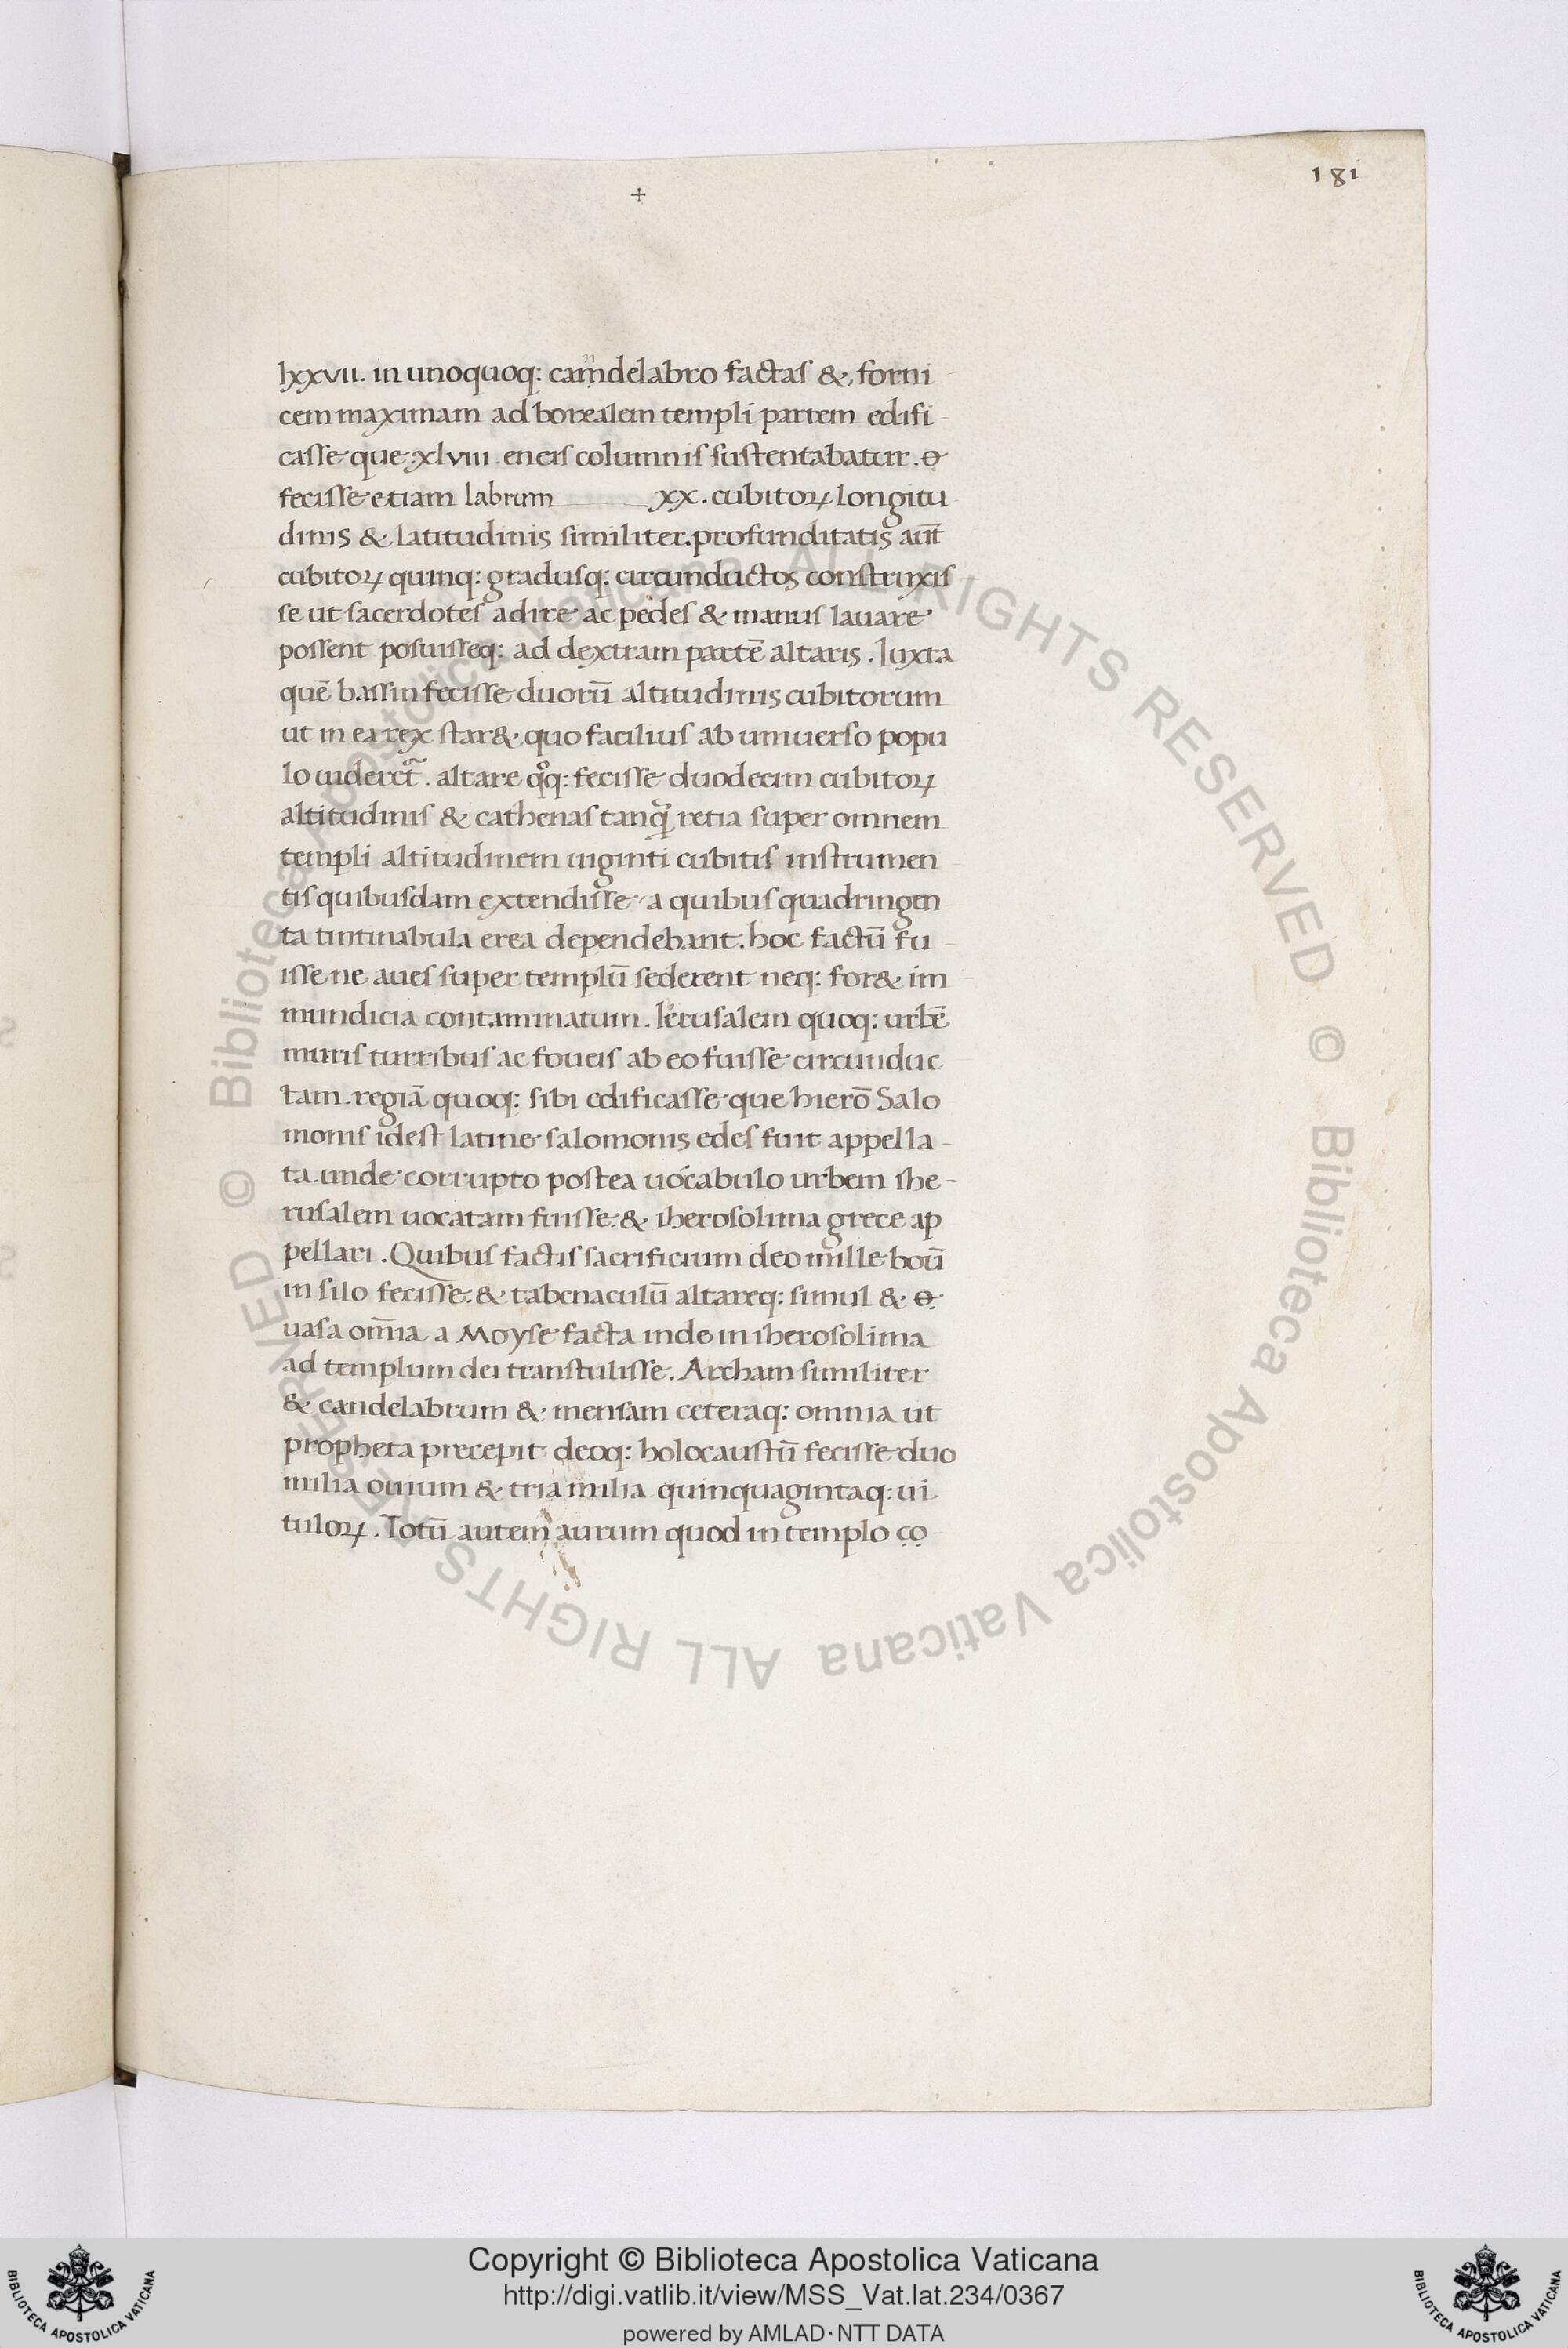 +
181
lxxvii. in unoquoq: camdelabro factas & forni-
cem maximam ad borealem templi partem edifi-
casse que xlviii. eneis columnis sustentabatur.
fecisse etiam labrum xx. cubitoꝝ longitu
dinis & latitudinis similiter. profunditatis aut̄
cubitoꝝ quinq: gradusq: circunductos construxis
se ut sacerdotes adire ac pedes & manus lauare
possent posuisseq: ad dextram partē altaris. Iuxta
quē bassin fecisse duorū altitudinis cubitorum
ut in ea rex star& quo facilius ab uniuerso popu
lo uideret̃. altare qͦq: fecisse duodecim cubitoꝝ
altitudinis & cathenas tanq̃ retia super omnem
templi altitudinem uiginti cubitis instrumen
tis quibusdam extendisse a quibus quadringen
ta tintinabula erea dependebant. hoc factū fu-
isse ne aues super templū sederent neq: for& im
mundicia contaminatum. Ierusalem quoq: urbē
muris turribus ac foueis ab eo fuisse circunduc
tam. regiā quoq: sibi edificasse que hierō Salo
monis idest latine salomonis edes fuit appella-
ta. unde corrupto postea uocabulo urbem ihe-
rusalem uocatam fuisse. & iherosolima grece ap
pellari. Quibus factis sacrificium deo mille boū
in silo fecisse. & tabenaculū altareq: simul &
uasa om̄ia a Moyse facta inde in iherosolima
ad templum dei transtulisse. Archam similiter
& candelabrum & mensam ceteraq: omnia ut
propheta precepit deoq: holocaustū fecisse duo
milia ouium & tria milia quinquagintaq: ui
tuloꝝ. Totū autem aurum quod in templo co
© Biblioteca Apostolica Vaticana ALL RIGHTS RESERVED © Biblioteca Apostolica Vaticana ALL RIGHTS RESERVED
Copyright © Biblioteca Apostolica Vaticana
http://digi.vatlib.it/view/MSS_Vat.lat.234/0367
powered by AMLAD·NTT DATA
BIBLIOTECA APOSTOLICA VATICANA
BIBLIOTECA APOSTOLICA VATICANA